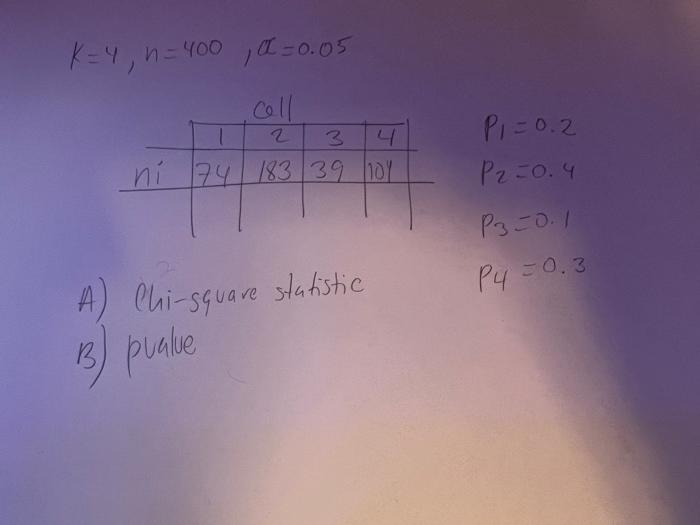 K=4, n=400, α=0.05
cell
1 2 3 4
ni 74 183 39 104
P1=0.2
P2=0.4
P3=0.1
P4=0.3
A) Chi-square statistic
B) pvalue